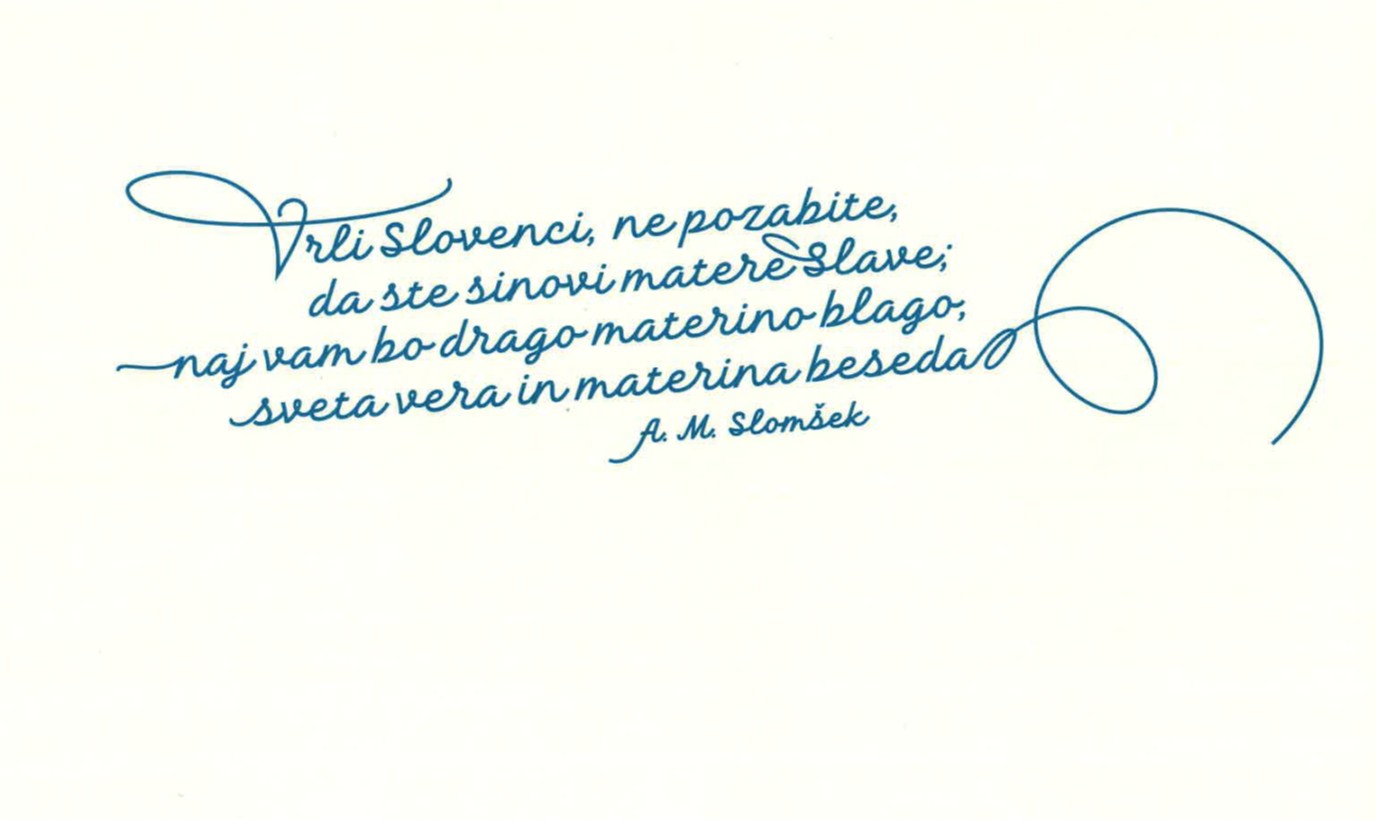 Vrli Slovenci, ne pozabite,
da ste sinovi matere Slave;
naj vam bo drago materino blago,
sveta vera in materina beseda
A. M. Slomšek